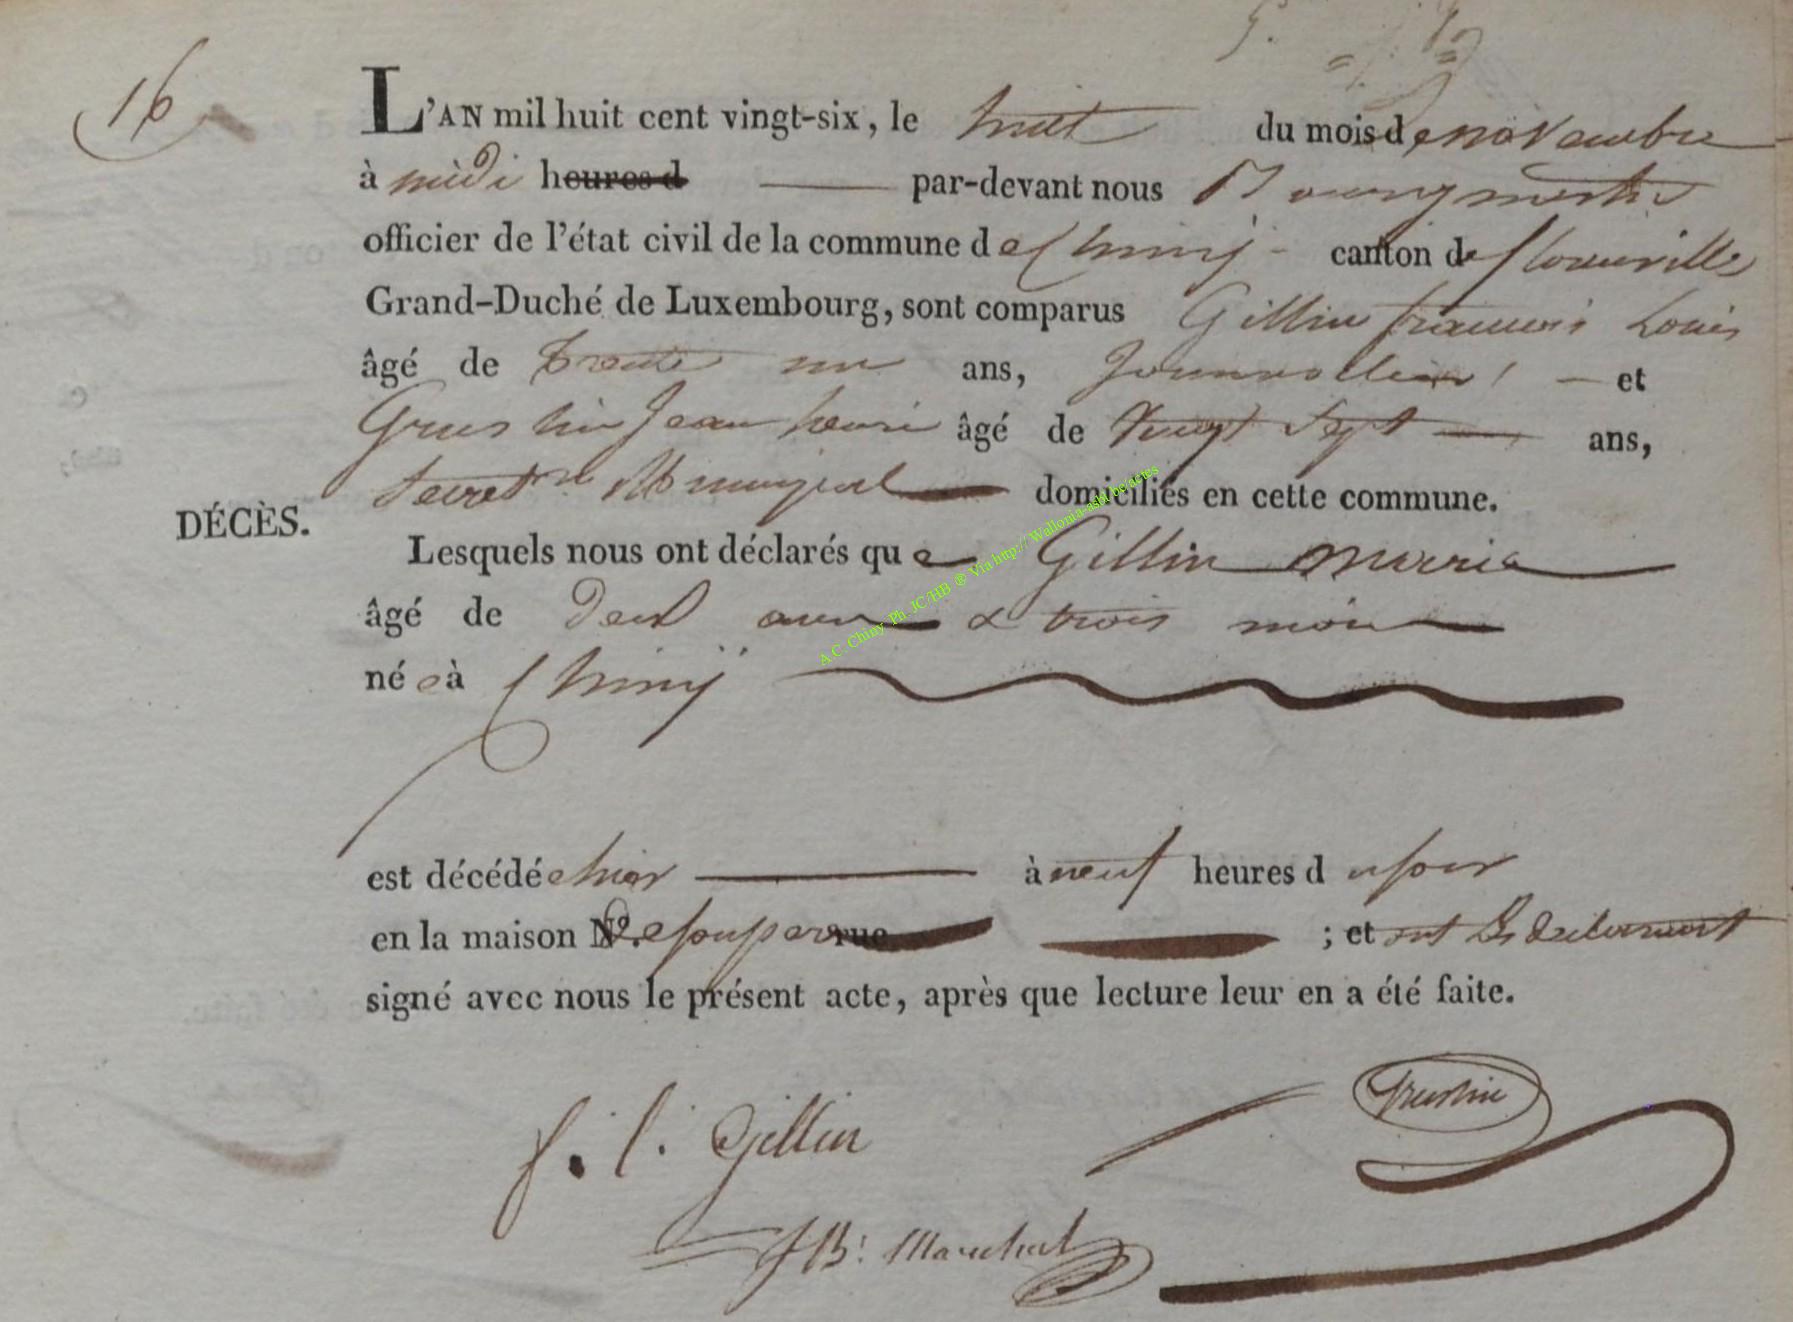 16
L'AN mil huit cent vingt-six, le huit du mois de novembre
à midi heures d par-devant nous Bourgmestre
officier de l'état civil de la commune de Chiny canton de florenville
Grand-Duché de Luxembourg, sont comparus Gillin francois Louis
âgé de trente un ans, Journallier et
Gruslin Jean henri âgé de vingt sept ans,
Secret.re Municipal domiciliés en cette commune.
DÉCÈS.
Lesquels nous ont déclarés que Gillin Marie
âgé de deux ans & trois mois
née à Chiny
est décédée hier à neuf heures du soir
en la maison N°. de son père rue ; et ont les declarants
signé avec nous le présent acte, après que lecture leur en a été faite.
f. l. Gillin
Gruslin
JB: Marchal
A.C. Chiny Ph. JC/HB ® Via http:// Wallonia-asbl.be/actes